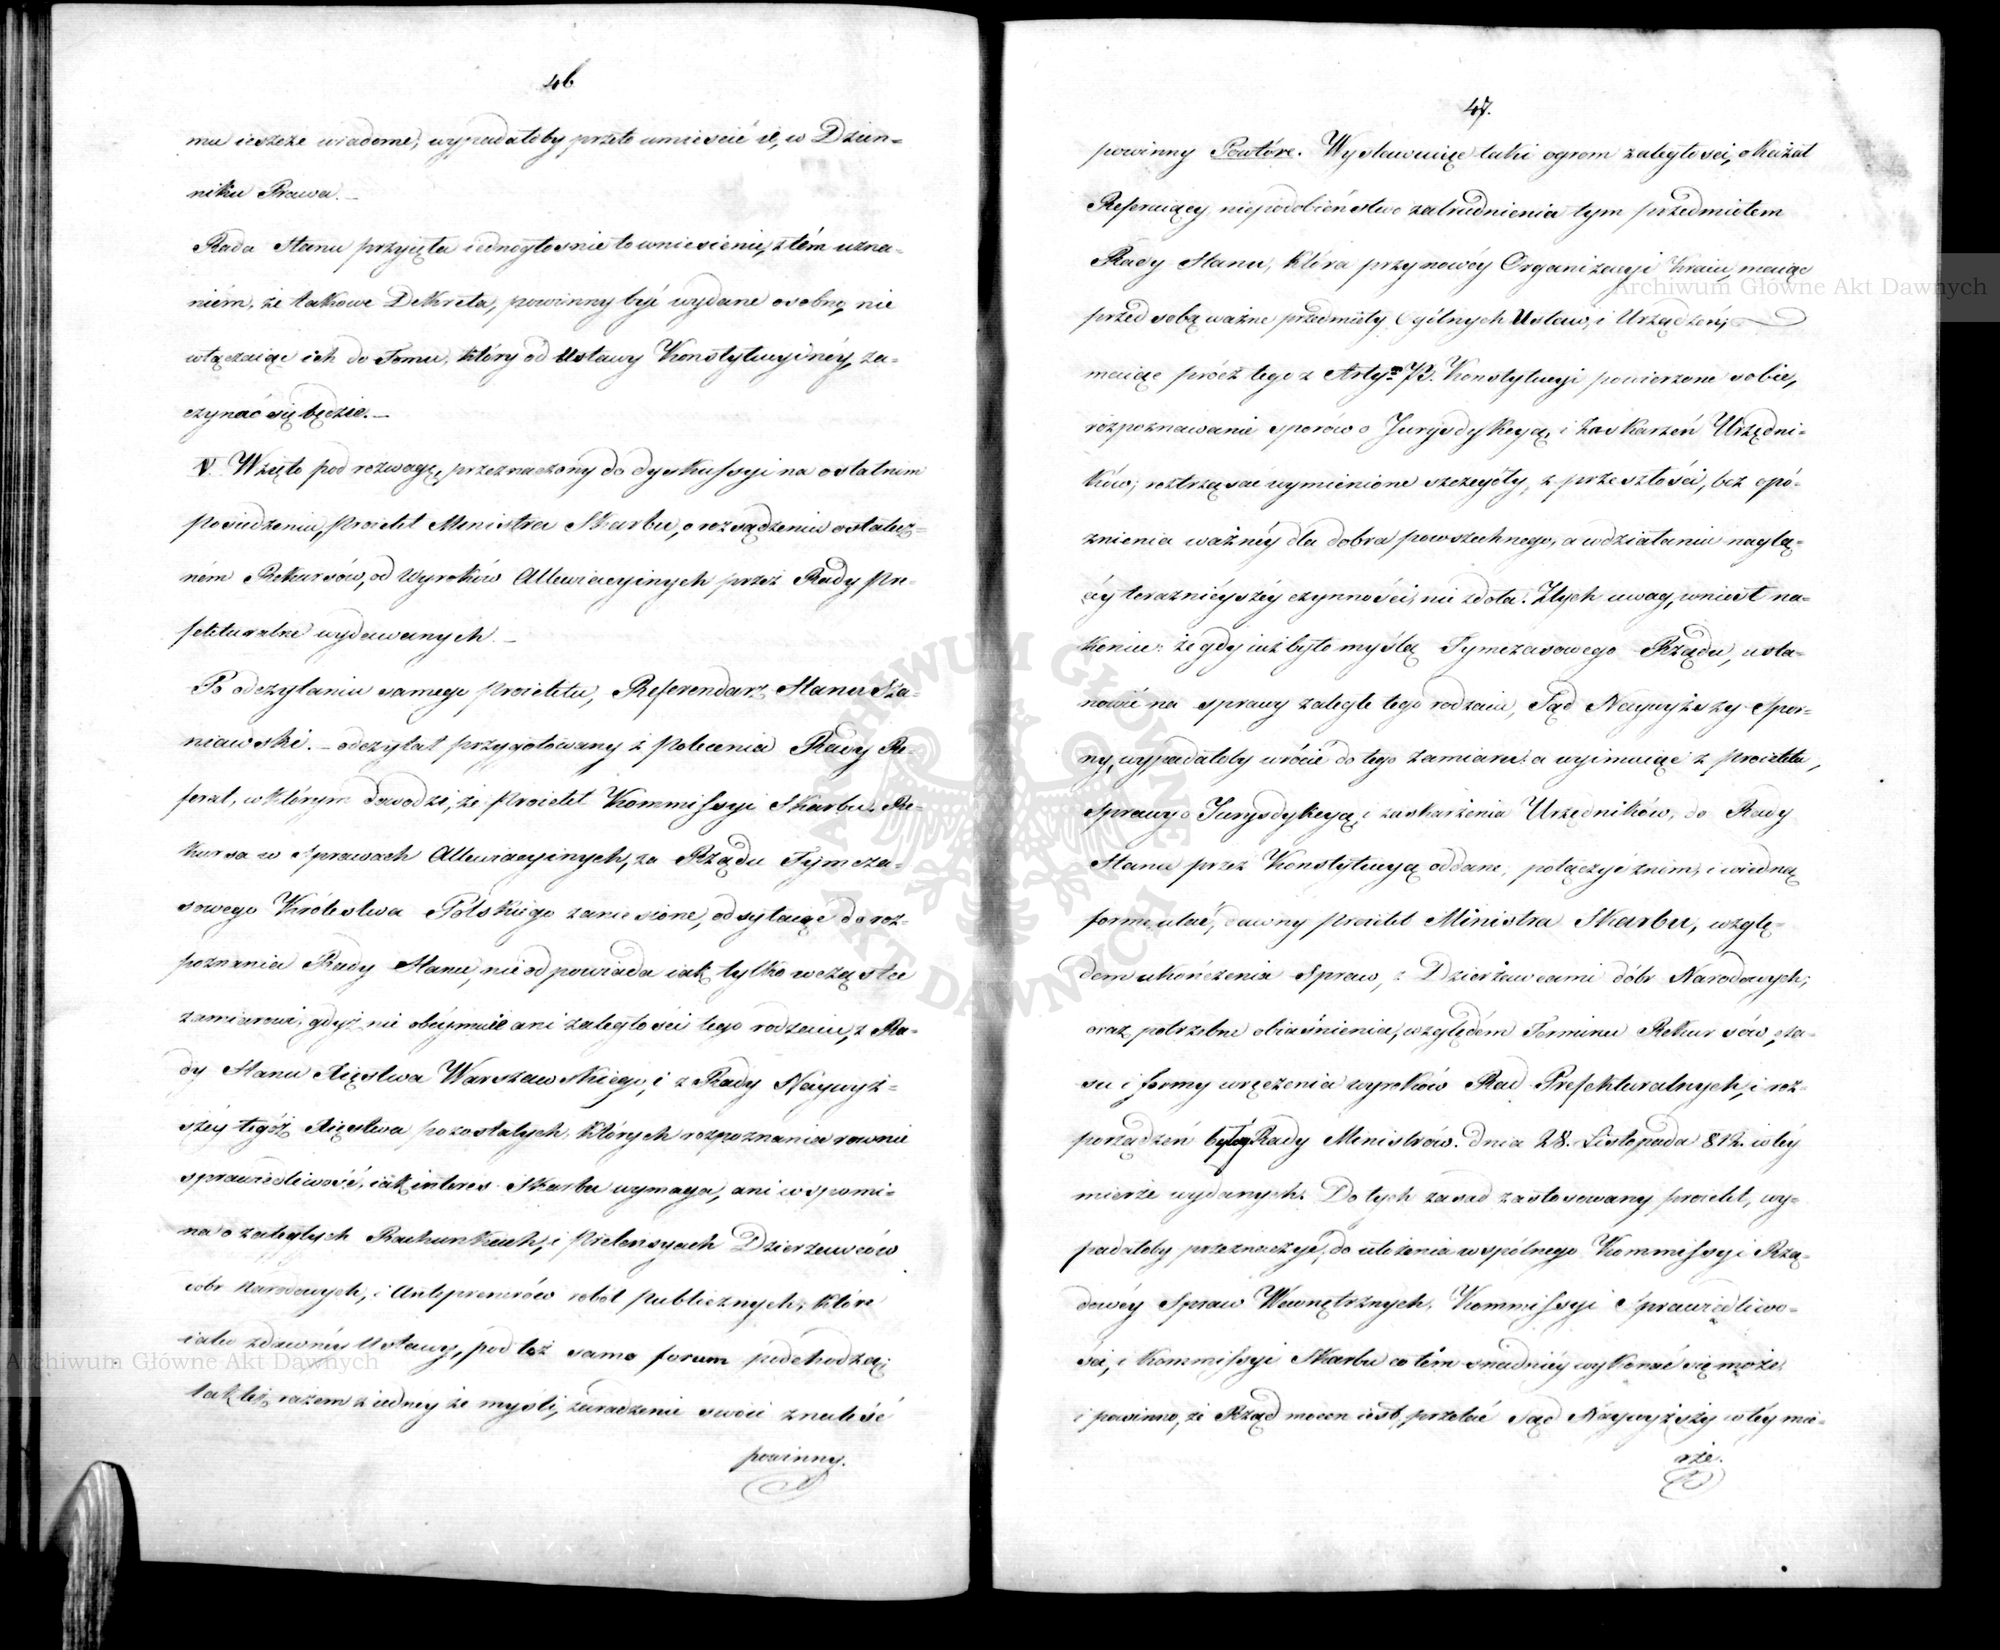 46
mu ieszcze wiadome; wypadałoby przeto umieścić ie, w Dzien=
niku Prawa. —
Rada Stanu przyięła iednogłośnie to wniesienie, z tém uzna=
niem, że takowe Dekreta, powinny być wydane osobno, nie
włączaiąc ich do Tomu, który od Ustawy Konstytucyinéy, za=
czynać się będzie. —
V. Wzięto pod rozwagę, przeznaczony do dyskussyi na ostatnim
posiedzeniu, Proiekt Ministra Skarbu, o rozsądzeniu ostatecz=
ném Rekursów, od Wyroków Allewiacyinych przez Rady Pre=
fekturalne wydawanych. —
Po odczytaniu samego Proiektu, Referendarz Stanu Sza=
niawski. — odczytał przygotowany z polecenia Rady Re=
ferat, w którym dowodzi, że Proiekt Kommissyi Skarbu, Re=
kursa w Sprawach Allewiacyinych, za Rządu Tymcza=
sowego Królestwa Polskiego zaniesione, odsyłaiąc do roz=
poznania Rady Stanu, nie odpowiada iak tylko w cząstce
zamiarowi, gdyż nie obéymuie ani zaległości tego rodzaiu, z Ra=
dy Stanu Xięstwa Warszawskiego, i z Rady Naywyż=
széy tegóż Xięstwa pozostałych, których rozpoznania równie
sprawiedliwość, iak interes Skarbu wymaga, ani wspomi=
na o zaległych Rachunkach, i Pretensyach Dzierżawców
dobr Narodowych, i Antreprenerów robot publicznych, które
iako z dawnéy Ustawy, pod też samo forum podchodzą;
tak też razem z iednéy że myśli, zaradzenie swoie znaleść
powinny.
47.
powinny Powtóre. Wystawuiąc taki ogrom zaległości, okazał
Referuiący niepodobieństwo zatrudnienia tym przedmiotem
Rady Stanu, która przy nowéy Organizacyi Kraiu, maiąc
przed sobą ważne przedmioty Ogólnych Ustaw, i Urządzeń;
maiąc prócz tego z Artyᵐ 73. Konstytucyi powierzone sobie,
rozpoznawanie sporów o Jurysdykcyą, i Zaskarżeń Urzędni=
ków; roztrząsać wymienione szczegóły, z przeszłości, bez opó=
znienia ważnéy dla dobra powszechnego, a w działaniu naglą=
céy teraznieyszéy czynności, nie zdoła. Z tych uwag, wniósł na=
koniec: że gdy iuż było myślą Tymczasowego Rządu, usta=
nowić na sprawy zaległe tego rodzaiu, Sąd Naywyższy Spor=
ny, wypadałoby wrócić do tego zamiaru: a wyimuiąc z Proiektu,
Sprawy o Jurysdykcyą, i zaskarżenia Urzędników, do Rady
Stanu przez Konstytucyą oddane, połączyć z nim, i w iedną
formę ulać, dawny Proiekt Ministra Skarbu, wzglę=
dem ukończenia Spraw, z Dzierżawcami dóbr Narodowych;
oraz potrzebne obiaśnienia, względém Terminu Rekursów, cza=
su i formy wręczenia wyroków Rad Prefekturalnych, i roz=
porządzeń byłéy Rady Ministrów. dnia 28. Listopada 812. w téy
mierze wydanych. Do tych zasad zastosowany proiekt, wy=
padałoby przeznaczyć, do ułożenia wspólnego Kommissyi Rzą=
dowéy Spraw Wewnętrznych, Kommissyi Sprawiedliwo=
ści, i Kommissyi Skarbu co tém snadniéy wykonać się może
i powinno, że Rząd mocen iest, przelać Sąd Naywyższy w téy mie=
rze.